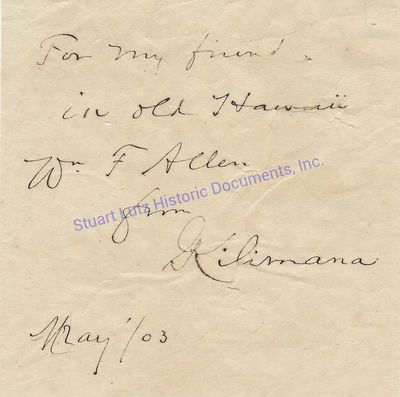 For my friend
in old Hawaii
Wm F Allen
Stuart Lutz Historic Documents, Inc.
from
Kilimana
May 1/03